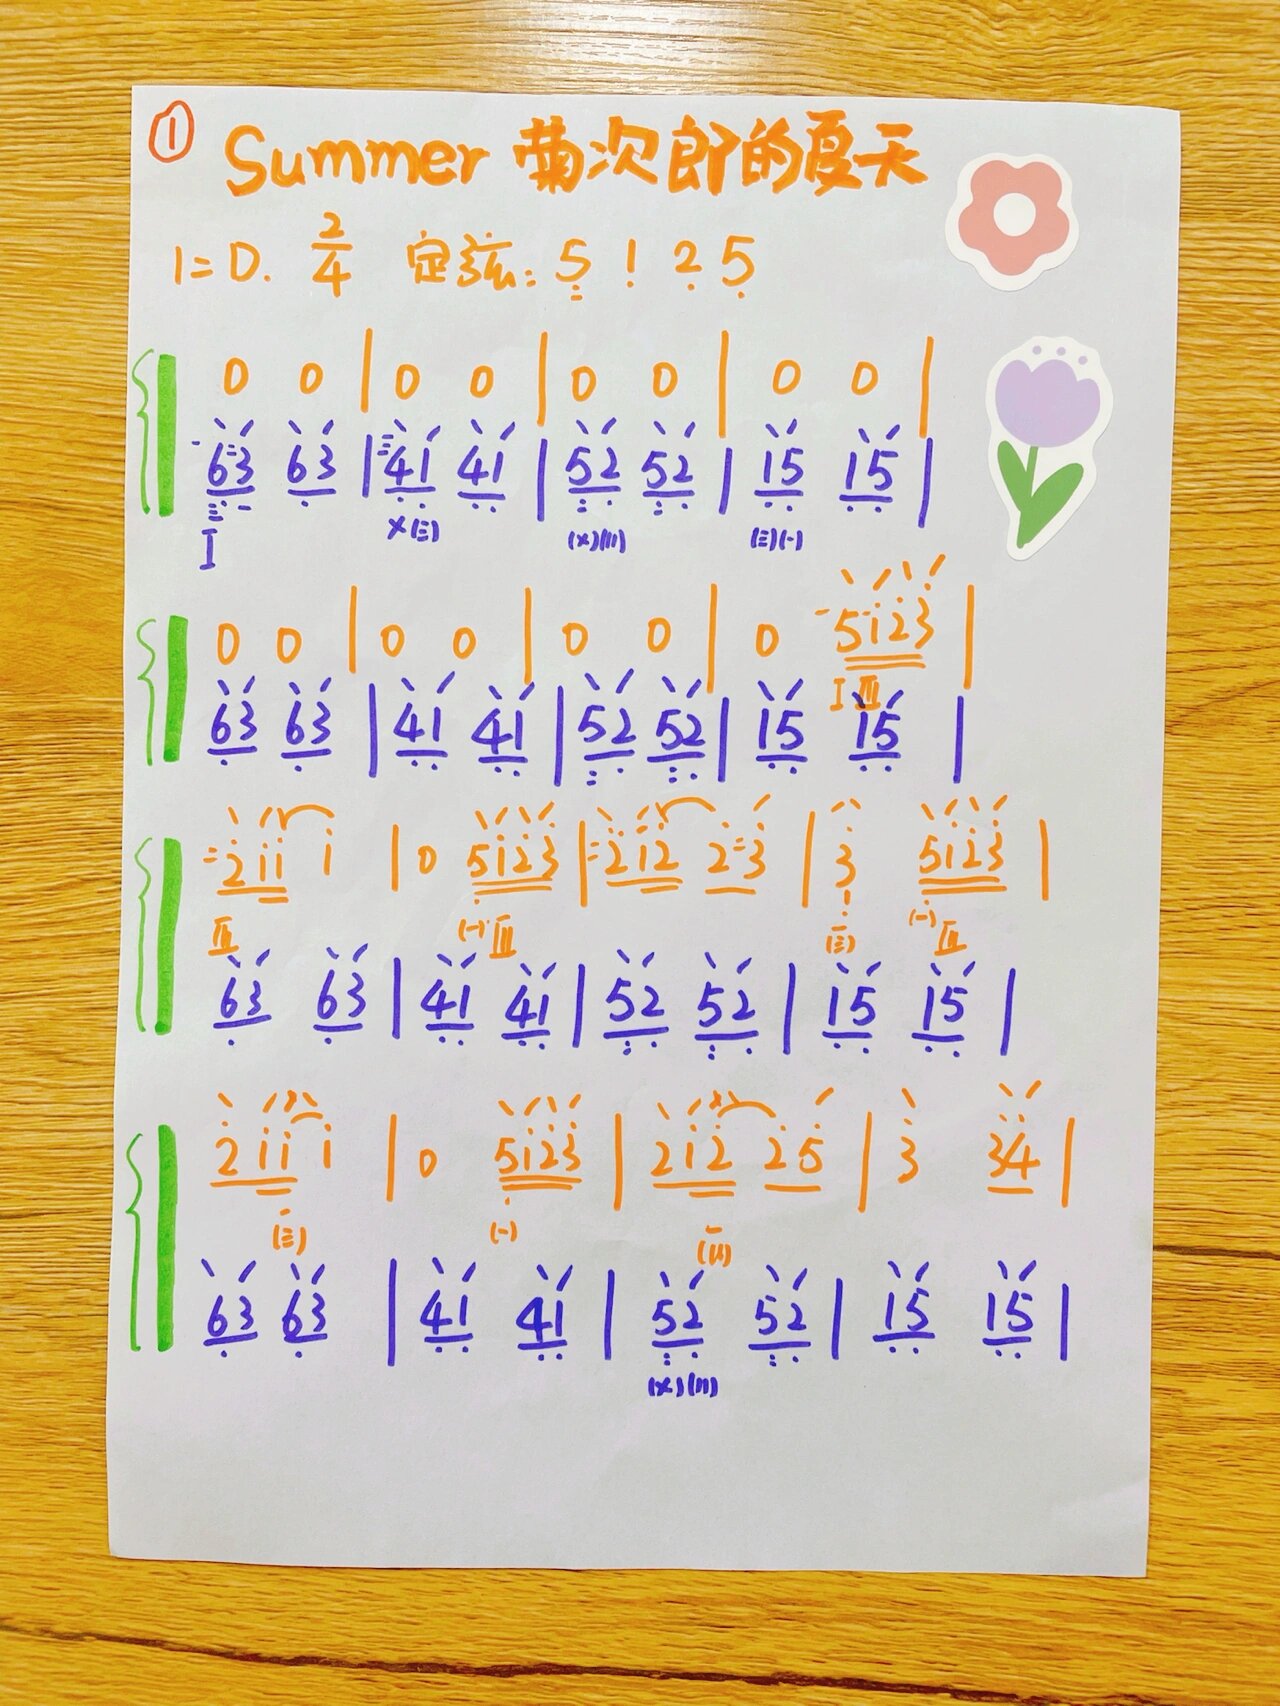 ① Summer 菊次郎的夏天
1=D. 2/4 定弦: 5 1 2 5
0 0 | 0 0 | 0 0 | 0 0 |
63 63 | 41 41 | 52 52 | 15 15 |
I x(三) (x)(II) (三)(一)
0 0 | 0 0 | 0 0 | 0 5123 |
I III
63 63 | 41 41 | 52 52 | 15 15 |
211 1 | 0 5123 | 212 23 | 3 5123 |
III (一) III (三) (一) III
63 63 | 41 41 | 52 52 | 15 15 |
211 1 | 0 5123 | 212 25 | 3 34 |
(三) (一) (II)
63 63 | 41 41 | 52 52 | 15 15 |
(x)(II)